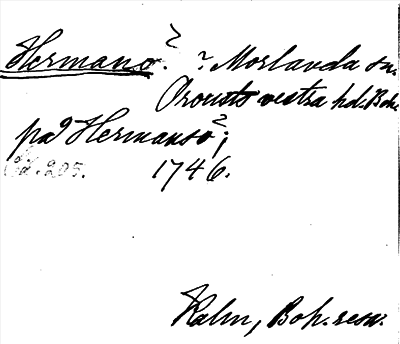 Hermanö. ? Morlanda sn.
Orousts vestra hd. Boh.
på Hermansö;
Sd. 205. 1746.
Kalm, Boh. resa.